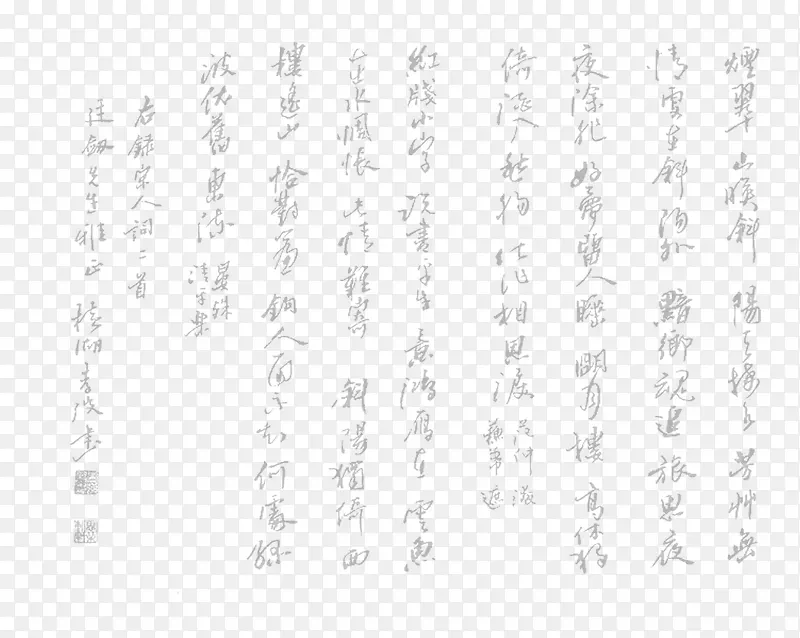 煙翠山暎斜陽天接水芳艸無
情更在斜陽外黯鄉魂追旅思夜
夜除非好夢留人睡明月樓高休獨
倚酒入愁腸化作相思淚
范仲淹
蘇幕遮
紅牋小字說盡平生意鴻雁在雲魚
在水惆悵此情難寄斜陽獨倚西
樓遙山恰對簾鉤人面不知何處綠
波依舊東流
晏殊
清平樂
右錄宋人詞二首
劍先生雅正 湖李 書